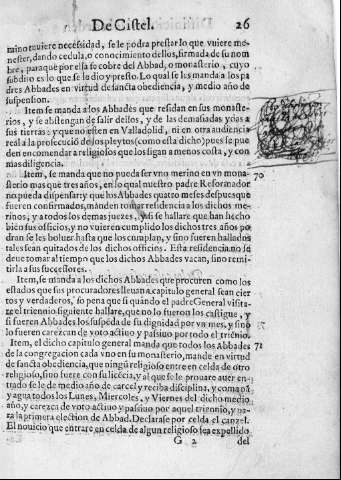 De Cistel. 26
mino tuuiere necessidad, se le podra prestar lo que vuiere me-
nester, dando cedula, o conocimiento dellos, firmada de su nom
bre, para que por ella se cobre del Abbad, o monasterio, cuyo
subdito es lo que se le dio y presto. Lo qual se les manda a los pa
dres Abbades en virtud de sancta obediencia, y medio año de
suspension.
Item se manda a los Abbades que residan en sus monaste-
rios, y se abstengan de salir dellos, y de las demasiadas ydas a
sus tierras: y que no esten en Valladolid, ni en otra audiencia
real a la prosecucio de los pleytos (como esta dicho) pues se pue
den encomendar a religiosos que los sigan a menos costa, y con
mas diligencia.
Item, se manda que no pueda ser vno merino en vn mona- 70
sterio mas que tres años, en lo qual nuestro padre Reformador
no pueda dispensar: y que los Abbades quatro meses despues que
fueren confirmados, manden tomar residencia a los dichos me-
rinos, y a todos los demas juezes, y si se hallare que han hecho
bien sus officios, y no vuieren cumplido los dichos tres años po
dran se les boluer hasta que los cumplan, y sino fueren hallados
tales sean quitados de los dichos officios. Esta residencia no se
deue tomar al tiempo que los dichos Abbades vacan, sino remi-
tirla a sus successores.
Item, se manda a los dichos Abbades que procuren como los
estados que sus procuradores lleuan a capitulo general sean cier
tos y verdaderos, so pena que si quando el padre General visita-
re el triennio siguiente hallare, que no lo fueron los castigue, y
si fueren Abbades los suspeda de su dignidad por vn mes, y sino
lo fueren carezcan de voto actiuo y passiuo por todo el trienio.
Item, el dicho capitulo general manda que todos los Abbades 72
de la congregacion cada vno en su monasterio, mande en virtud
de sancta obediencia, que ningu religioso entre en celda de otro
religioso, sino fuere con su licecia, y al que se le prouare auer en-
trado se le de medio año de carcel y reciba disciplina, y coma pa
y agua todos los Lunes, Miercoles, y Viernes del dicho medio
año, y carezca de voto actiuo y passiuo por aquel triennio, y pa-
ra la primera election de Abbad. Declarase por celda el cancel.
El nouicio que entrare en celda de algun religioso sea expellido
G 2 del